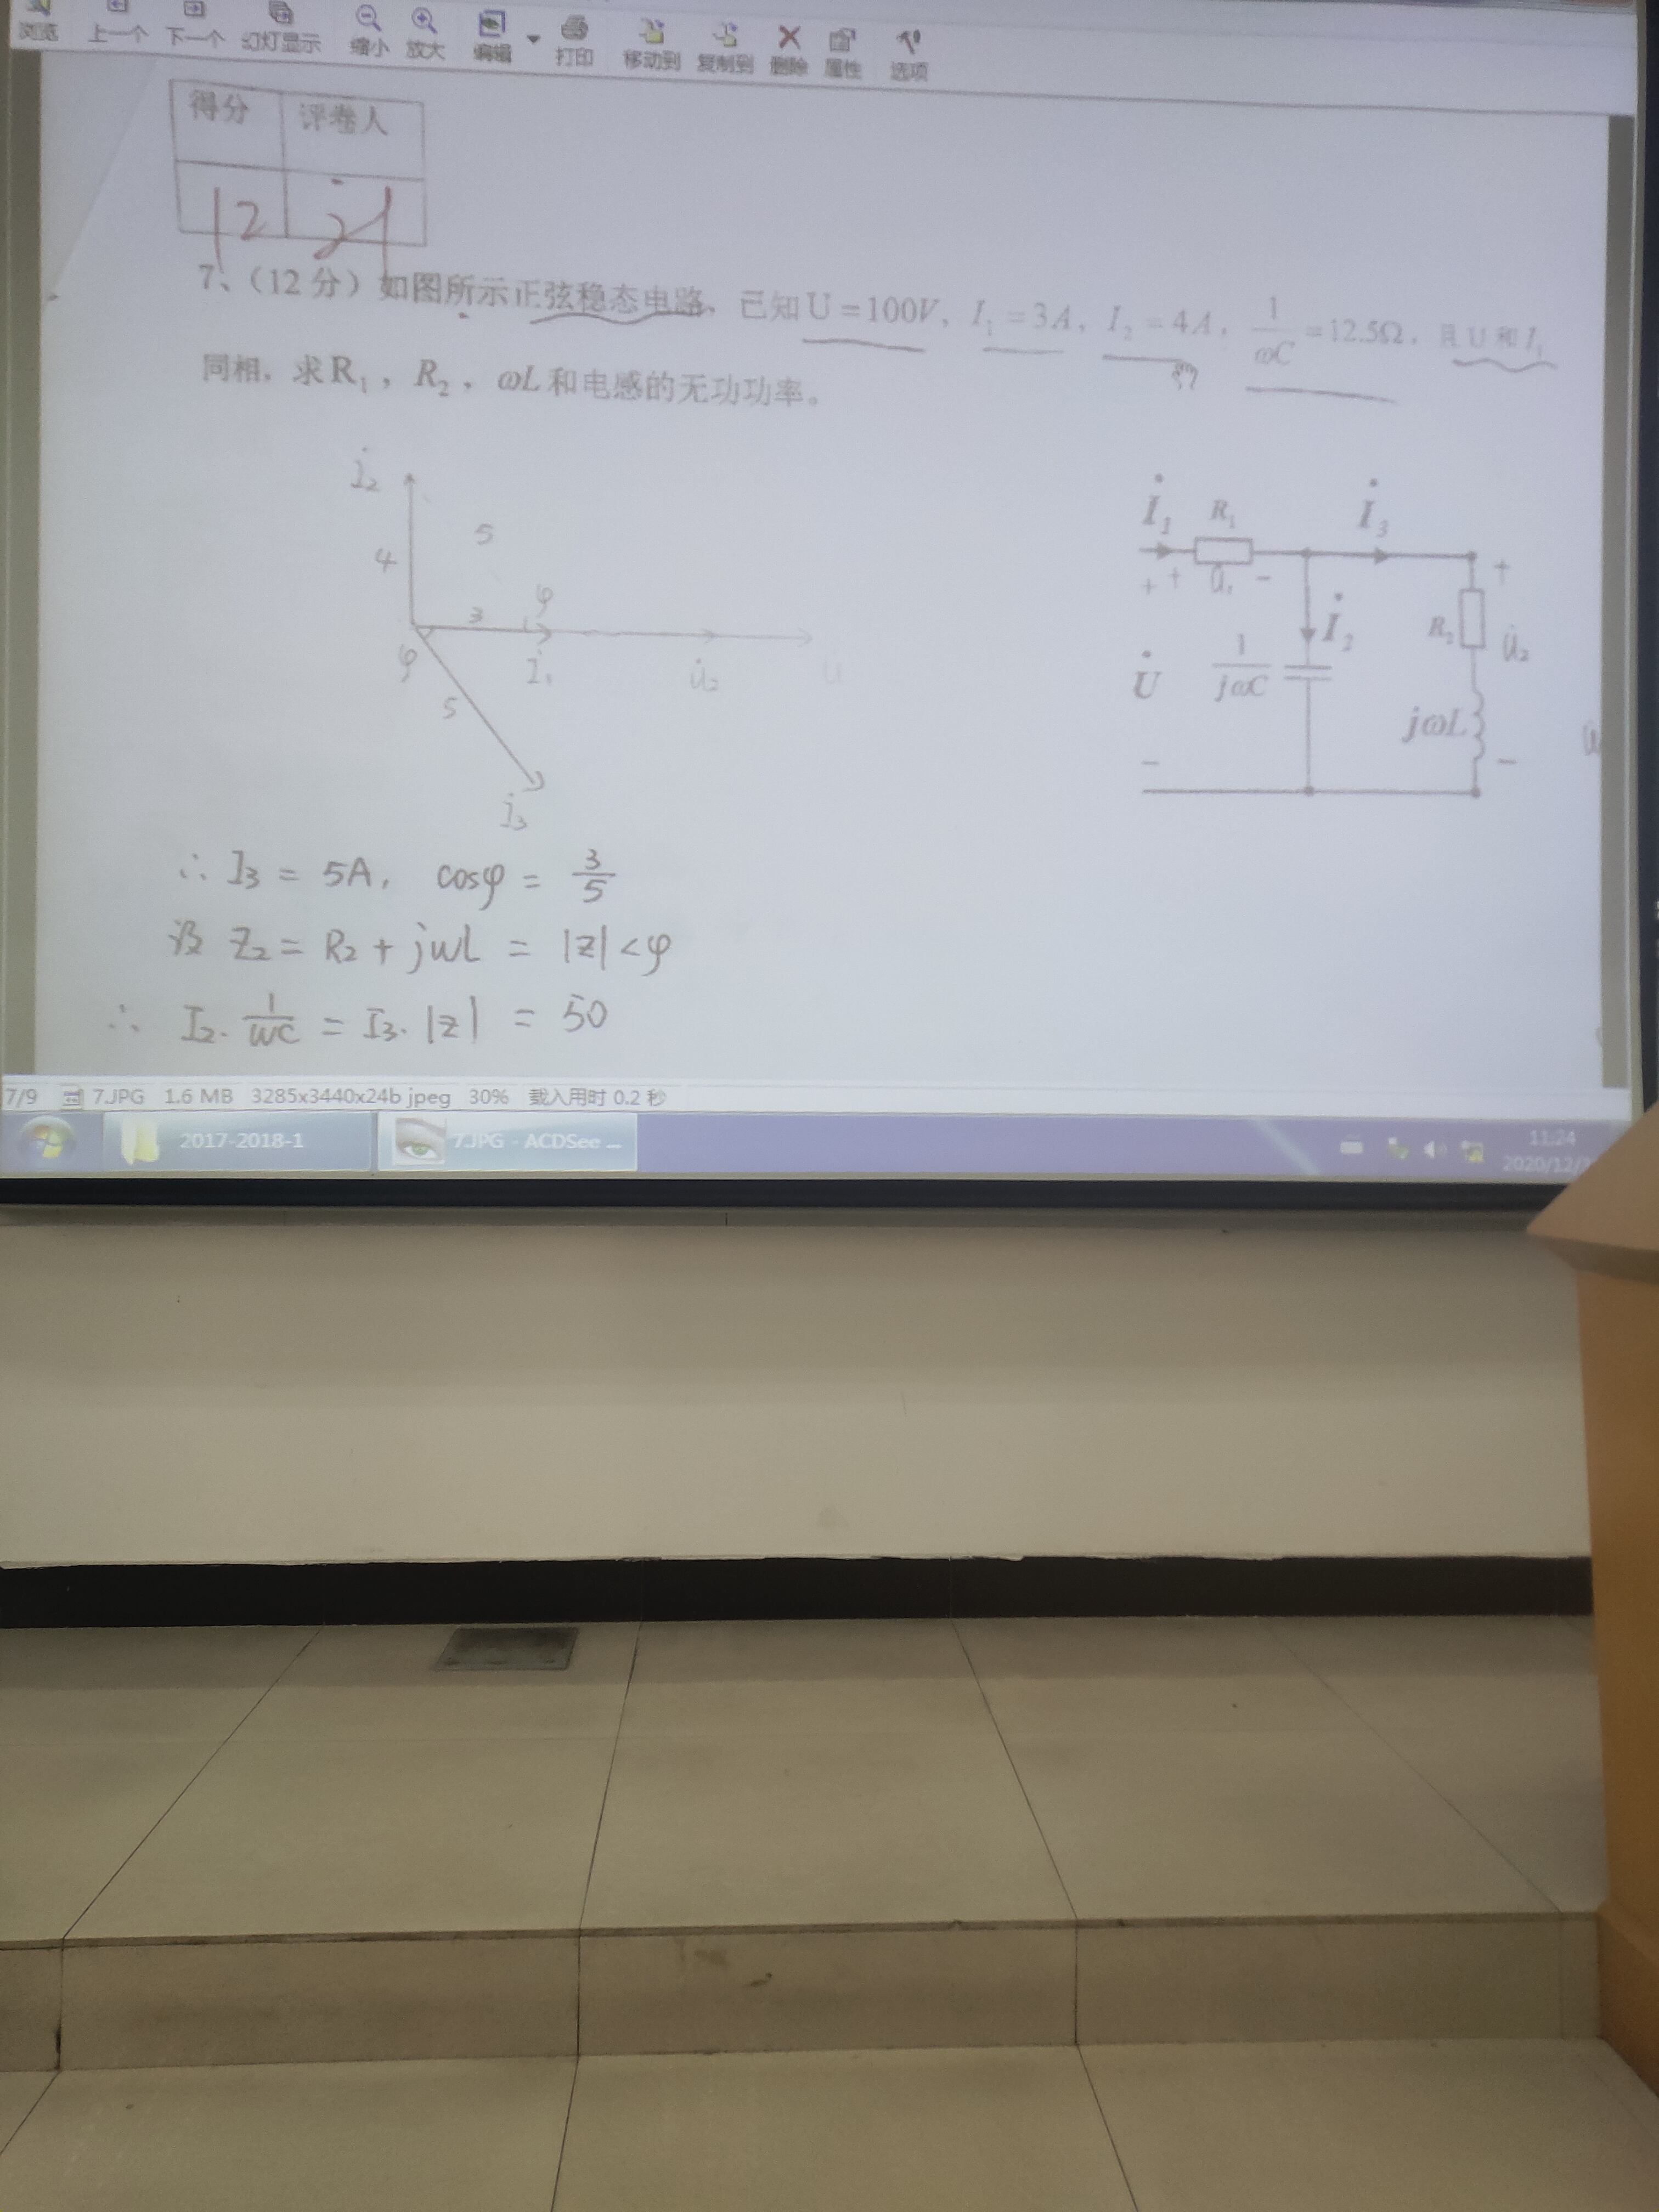 浏览 上一个 下一个 幻灯显示 缩小 放大 编辑 打印 移动到 复制到 删除 属性 选项
得分 评卷人
12
7、（12分）如图所示正弦稳态电路，已知U=100V，I₁=3A，I₂=4A，1/ωC=12.5Ω，且U和I₁
同相，求R₁，R₂，ωL和电感的无功功率。
İ₂
5
4
3 φ
φ İ₁ u̇₂ u̇
5
İ₃
İ₁ R₁ İ₃
+ + u̇₁ − +
İ₂ R₂ u̇₂
U̇ 1/jωC jωL
− −
∴ I₃ = 5A, cosφ = 3/5
设 Z₂ = R₂ + jωL = |Z|<φ
∴ I₂· 1/ωC = I₃·|Z| = 50
7/9 7.JPG 1.6 MB 3285x3440x24b jpeg 30% 载入用时 0.2 秒
2017-2018-1 7.JPG - ACDSee ... 11:24
2020/12/